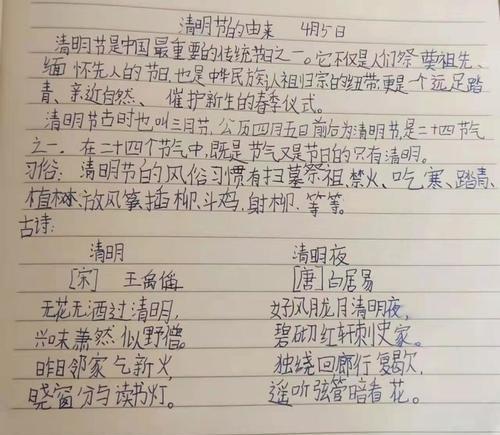 清明节的由来 4月5日
清明节是中国最重要的传统节日之一。它不仅是人们祭奠祖先、
缅怀先人的节日,也是中华民族认祖归宗的纽带,更是一个远足踏
青、亲近自然、催护新生的春季仪式。
清明节古时也叫三月节,公历四月五日前后为清明节,是二十四节气
之一。在二十四个节气中,既是节气又是节日的只有清明。
习俗:清明节的风俗习惯有扫墓祭祖、禁火、吃寒、踏青、
植树、放风筝、插柳、斗鸡、射柳、等等。
古诗:
清明
[宋] 王禹偁
无花无酒过清明,
兴味萧然似野僧。
昨日邻家乞新火,
晓窗分与读书灯。
清明夜
[唐]白居易
好风胧月清明夜,
碧砌红轩刺史家。
独绕回廊行复歇,
遥听弦管暗看花。